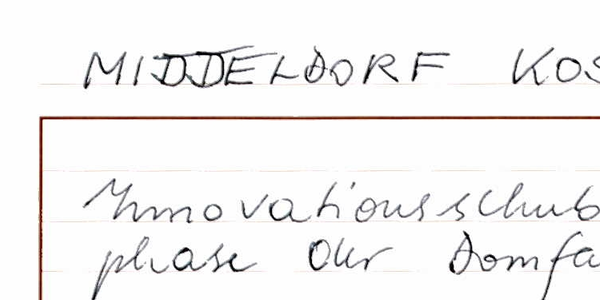 MIDDELDORF KOS
Innovationsschub
phase der Domfa